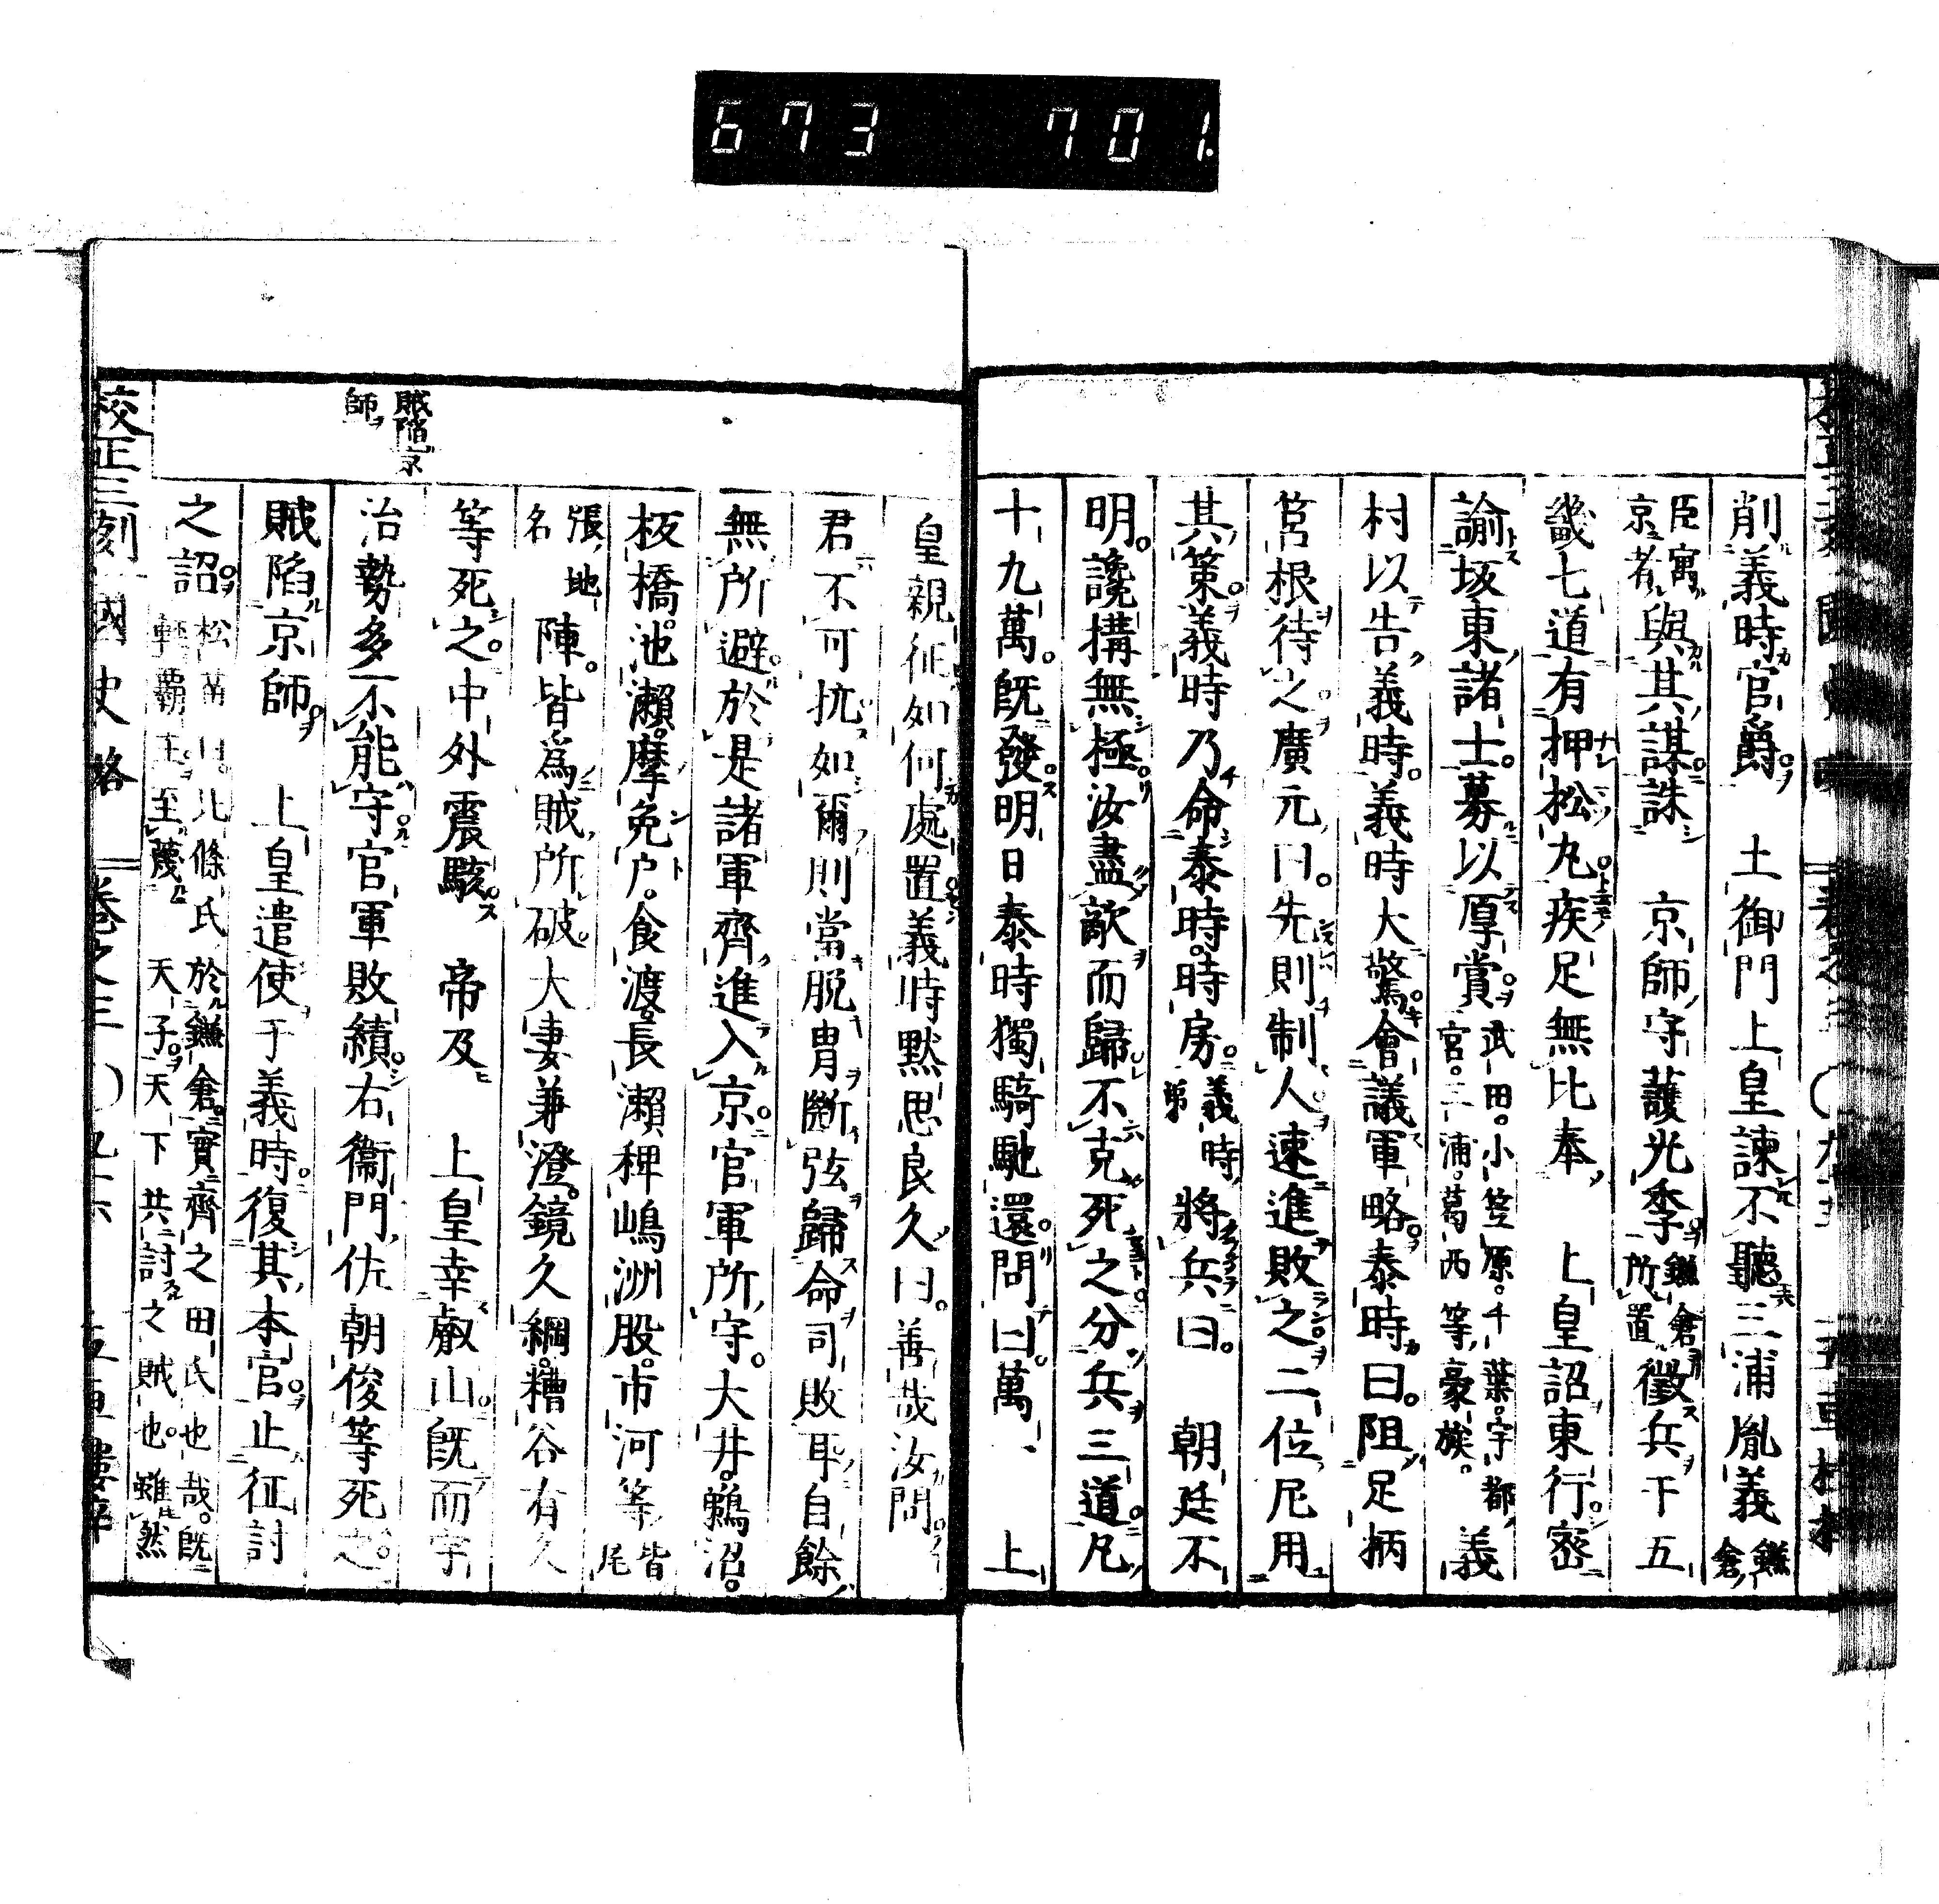 673 701.
削義時官爵 土御門上皇諫不聽三浦胤義鎌倉
臣寓京者與其謀誅 京師守護光季鎌倉所置徵兵于五
畿七道有押松丸疾足無比奉 上皇詔東行密
諭坂東諸士募以厚賞武田。小笠原。千葉。宇都宮。三浦。葛西等豪族。義
村以告義時義時大驚會議軍略泰時曰。阻足柄
筥根待之廣元曰。先則制人速進敗之二位尼用
其策義時乃命泰時。時房義時弟將兵曰。 朝廷不
明。讒構無極汝盡敵而歸不克死之分兵三道凡
十九萬既發明日泰時獨騎馳還問曰萬、 上
賊陷京師
皇親征如何處置義時默思良久曰。善哉汝問
君不可抗如爾則當脫冑斷弦歸命司敗耳自餘
無所避於是諸軍齊進入京官軍所守。大井。鵜沼。
板橋。池瀨。摩免戶。食渡。長瀨稗嶋洲股。市河等皆尾
張地名陣。皆爲賊所破。大妻兼澄。鏡久綱。糟谷有久
等死之。中外震駭 帝及 上皇幸叡山既而宇
治勢多不能守官軍敗績右衞門佐朝俊等死之。
賊陷京師 上皇遣使于義時復其本官止征討
之詔松苗曰。北條氏於鎌倉實齊之田氏也哉。既輕霸王至蔑天子天下共討之賊也。雖然
校正三刻國史略 卷之三 ○九六 五車樓梓